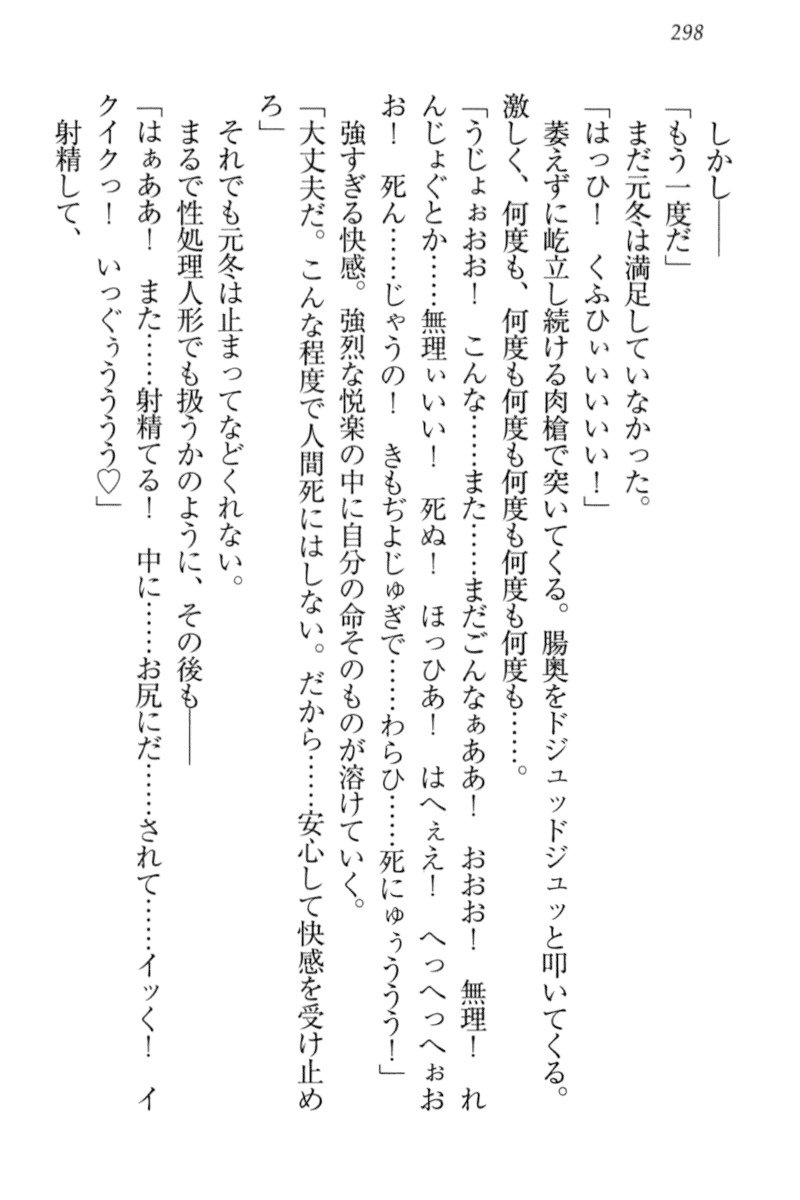 298
しかし――
「もう一度だ」
まだ元冬は満足していなかった。
「はっひ！　くふひぃいいいい！」
萎えずに屹立し続ける肉槍で突いてくる。腸奥をドジュッドジュッと叩いてくる。
激しく、何度も、何度も何度も何度も何度も何度も……。
「うじょぉおお！　こんな……また……まだごんなぁああ！　おおお！　無理！　れ
んじょぐとか……無理ぃいい！　死ぬ！　ほっひあ！　はへぇえ！　へっへっへぉお
お！　死ん……じゃうの！　きもぢよじゅぎで……わらひ……死にゅぅううう！」
強すぎる快感。強烈な悦楽の中に自分の命そのものが溶けていく。
「大丈夫だ。こんな程度で人間死にはしない。だから……安心して快感を受け止め
ろ」
それでも元冬は止まってなどくれない。
まるで性処理人形でも扱うかのように、その後も――
「はぁああ！　また……射精てる！　中に……お尻にだ……されて……イッく！　イ
クイクっ！　いっぐぅうううう♡」
射精して、